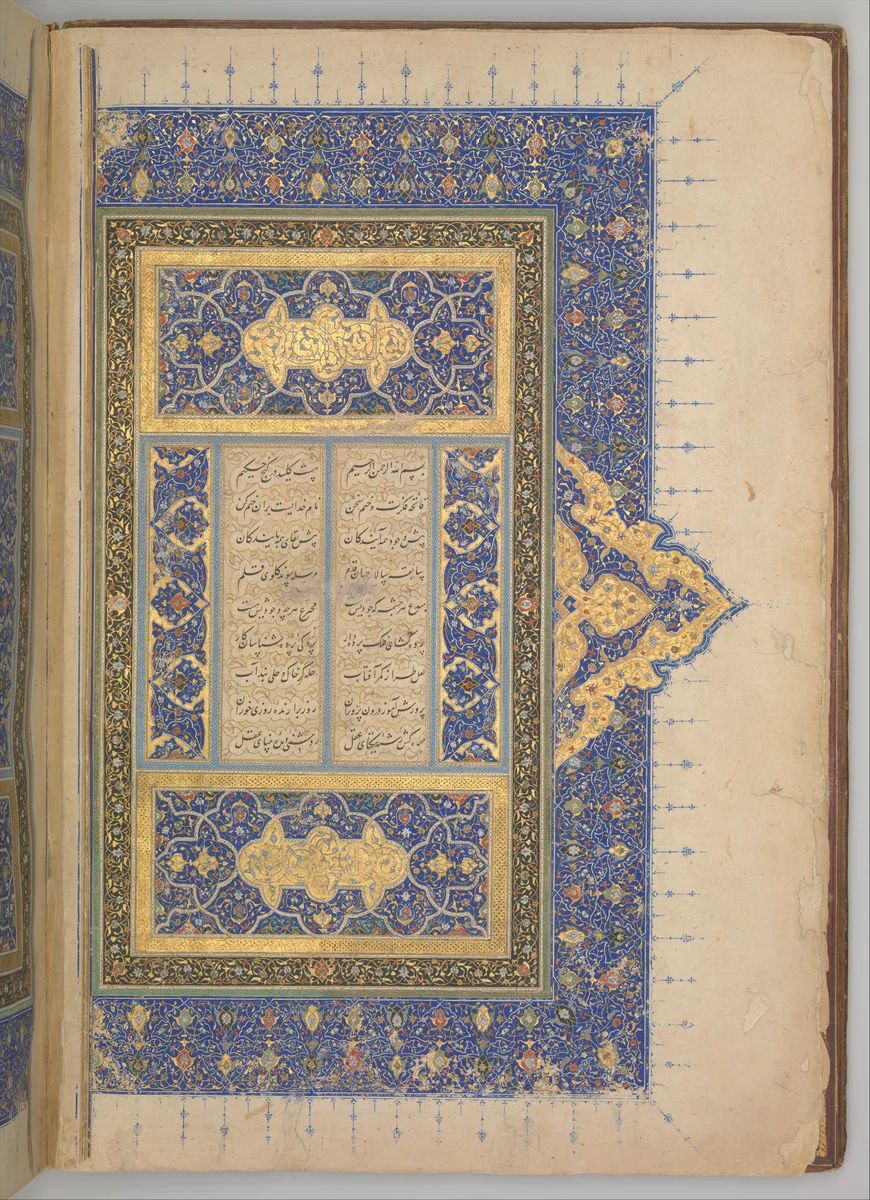 بسم الله الرحمن الرحیم هست کلید در گنج حکیم
فاتحه فکرت و ختم سخن نام خدایست بران ختم کن
پیش وجود همه آیندگان بیش بقای همه پایندگان
سابقه سالار جهان قدم مرسله پیوند گلوی قلم
مبدع هر چشمه که جودیش هست مخترع هر چه وجودیش هست
پرده گشای فلک پرده دار پردگی پرده شناسان کار
لعل طراز کمر آفتاب حله گر خاک و حلی بند آب
پرورش آموز درون پروران روز برآرنده روزی خوران
مهره کش رشته یکتای عقل روشنی دیده بینای عقل